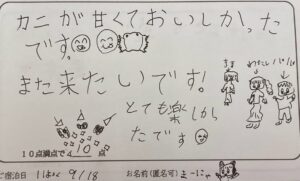 カニが甘くておいしかった
です。
また来たいです!
まま わたし パパ
とても楽しかっ
たです
10点満点で 10 点
ご宿泊日 1ぱく 9/18 お名前(匿名可) まーにゃ